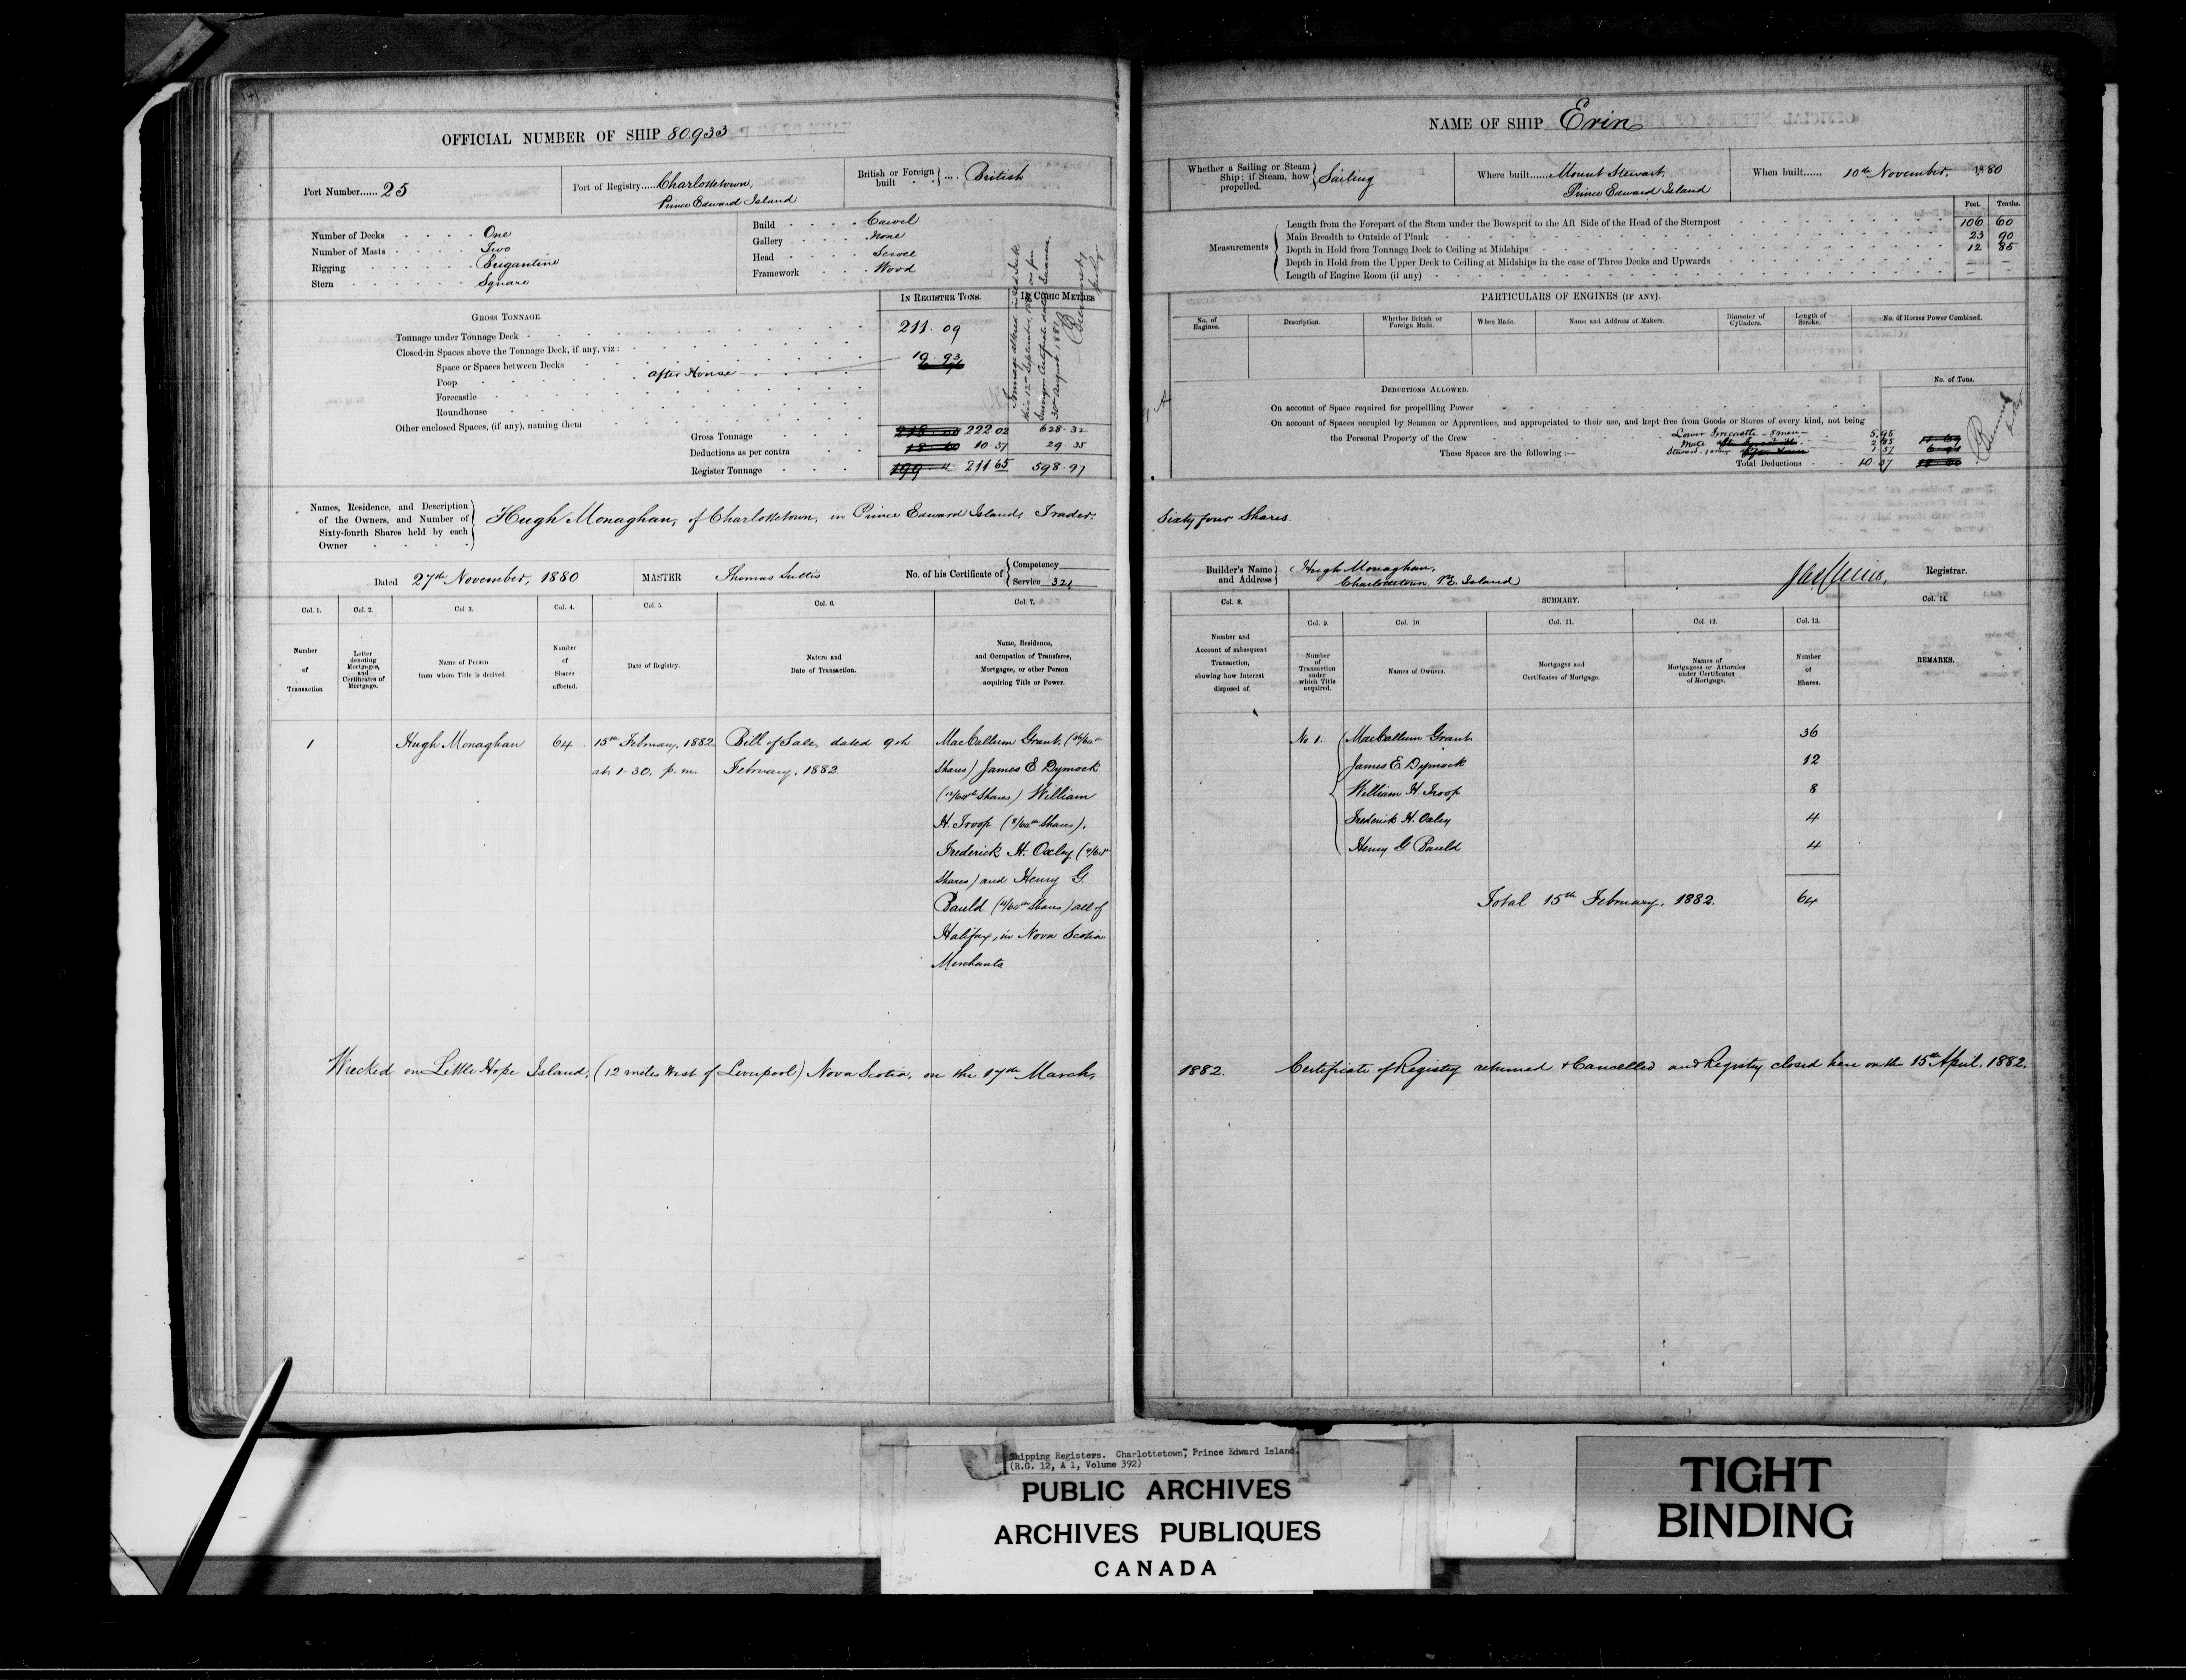 OFFICIAL NUMBER OF SHIP 80.933
Port Number...... 25
Port of Registry...... Charlottetown,
Prince Edward Island
British or Foreign built .... British
Number of Decks One
Number of Masts Two
Rigging Brigantine
Stern Square
Build Carvel
Gallery None
Head Scroll
Framework Wood
GROSS TONNAGE.
IN REGISTER TONS.
IN CUBIC METRES
Tonnage under Tonnage Deck 211.09
Closed-in Spaces above the Tonnage Deck, if any, viz:
Space or Spaces between Decks
Poop after House 10.93
Forecastle
Roundhouse
Other enclosed Spaces, (if any), naming them
Gross Tonnage 222 02 628.32
Deductions as per contra 10.37 29.35
Register Tonnage 211 65 598.97
Names, Residence, and Description
of the Owners, and Number of
Sixty-fourth Shares held by each
Owner
Hugh Monaghan, of Charlottetown, in Prince Edward Island, Trader.
Dated 27th November, 1880
MASTER Thomas
No. of his Certificate of
Competency
Service 321
Col. 1. Col. 2. Col 3. Col. 4. Col. 5. Col. 6. Col. 7.
Number of Transaction
Letter denoting Mortgages, and Certificates of Mortgage.
Name of Person from whom Title is derived.
Number of Shares affected.
Date of Registry.
Nature and Date of Transaction.
Name, Residence, and Occupation of Transferee, Mortgage, or other Person acquiring Title or Power.
1 Hugh Monaghan 64 15th February, 1882 Bill of Sale, dated 9th MacCallum Grant, (36/64th
at 1-30, p.m. February, 1882. Shares) James E. Dymock
(12/64th Shares) William
H. Troop (8/64th Shares),
Frederick H. Oxley (4/64th
Shares) and Henry G.
Bauld (4/64th Shares) all of
Halifax, in Nova Scotia
Merchants
Wrecked on Little Hope Island, (12 miles West of Liverpool) Nova Scotia, on the 17th March,
NAME OF SHIP Erin
Whether a Sailing or Steam Ship; if Steam, how propelled. Sailing
Where built...... Mount Stewart,
Prince Edward Island
When built...... 10th November, 1880
Feet. Tenths.
Measurements
Length from the Forepart of the Stem under the Bowsprit to the Aft Side of the Head of the Sternpost 106 60
Main Breadth to Outside of Plank 23 90
Depth in Hold from Tonnage Deck to Ceiling at Midships 12 85
Depth in Hold from the Upper Deck to Ceiling at Midships in the case of Three Decks and Upwards
Length of Engine Room (if any)
PARTICULARS OF ENGINES (IF ANY).
No. of Engines. Description. Whether British or Foreign Made. When Made. Name and Address of Makers. Diameter of Cylinders. Length of Stroke. No. of Horses Power Combined.
DEDUCTIONS ALLOWED.
No. of Tons.
On account of Space required for propelling Power
On account of Spaces occupied by Seamen or Apprentices, and appropriated to their use, and kept free from Goods or Stores of every kind, not being
the Personal Property of the Crew Lower Forecastle - 5 men 5.95
These Spaces are the following:—
Total Deductions 10.37
Sixty four Shares.
Builder's Name and Address Hugh Monaghan,
Charlottetown P.E. Island
Registrar.
Col. 8. SUMMARY. Col. 14.
Col. 9. Col. 10. Col. 11. Col. 12. Col. 13.
Number and Account of subsequent Transaction, showing how Interest disposed of.
Number of Transaction under which Title acquired.
Names of Owners.
Mortgages and Certificates of Mortgage.
Names of Mortgagees or Attornies under Certificates of Mortgage.
Number of Shares.
REMARKS.
No 1. MacCallum Grant 36
James E Dymock 12
William H. Troop 8
Frederick H. Oxley 4
Henry G Bauld 4
Total 15th February, 1882. 64
1882. Certificate of Registry returned & Cancelled and Registry closed here on the 15th April, 1882.
Shipping Registers. Charlottetown, Prince Edward Island.
(R.G. 12, A 1, Volume 392)
PUBLIC ARCHIVES
ARCHIVES PUBLIQUES
CANADA
TIGHT
BINDING